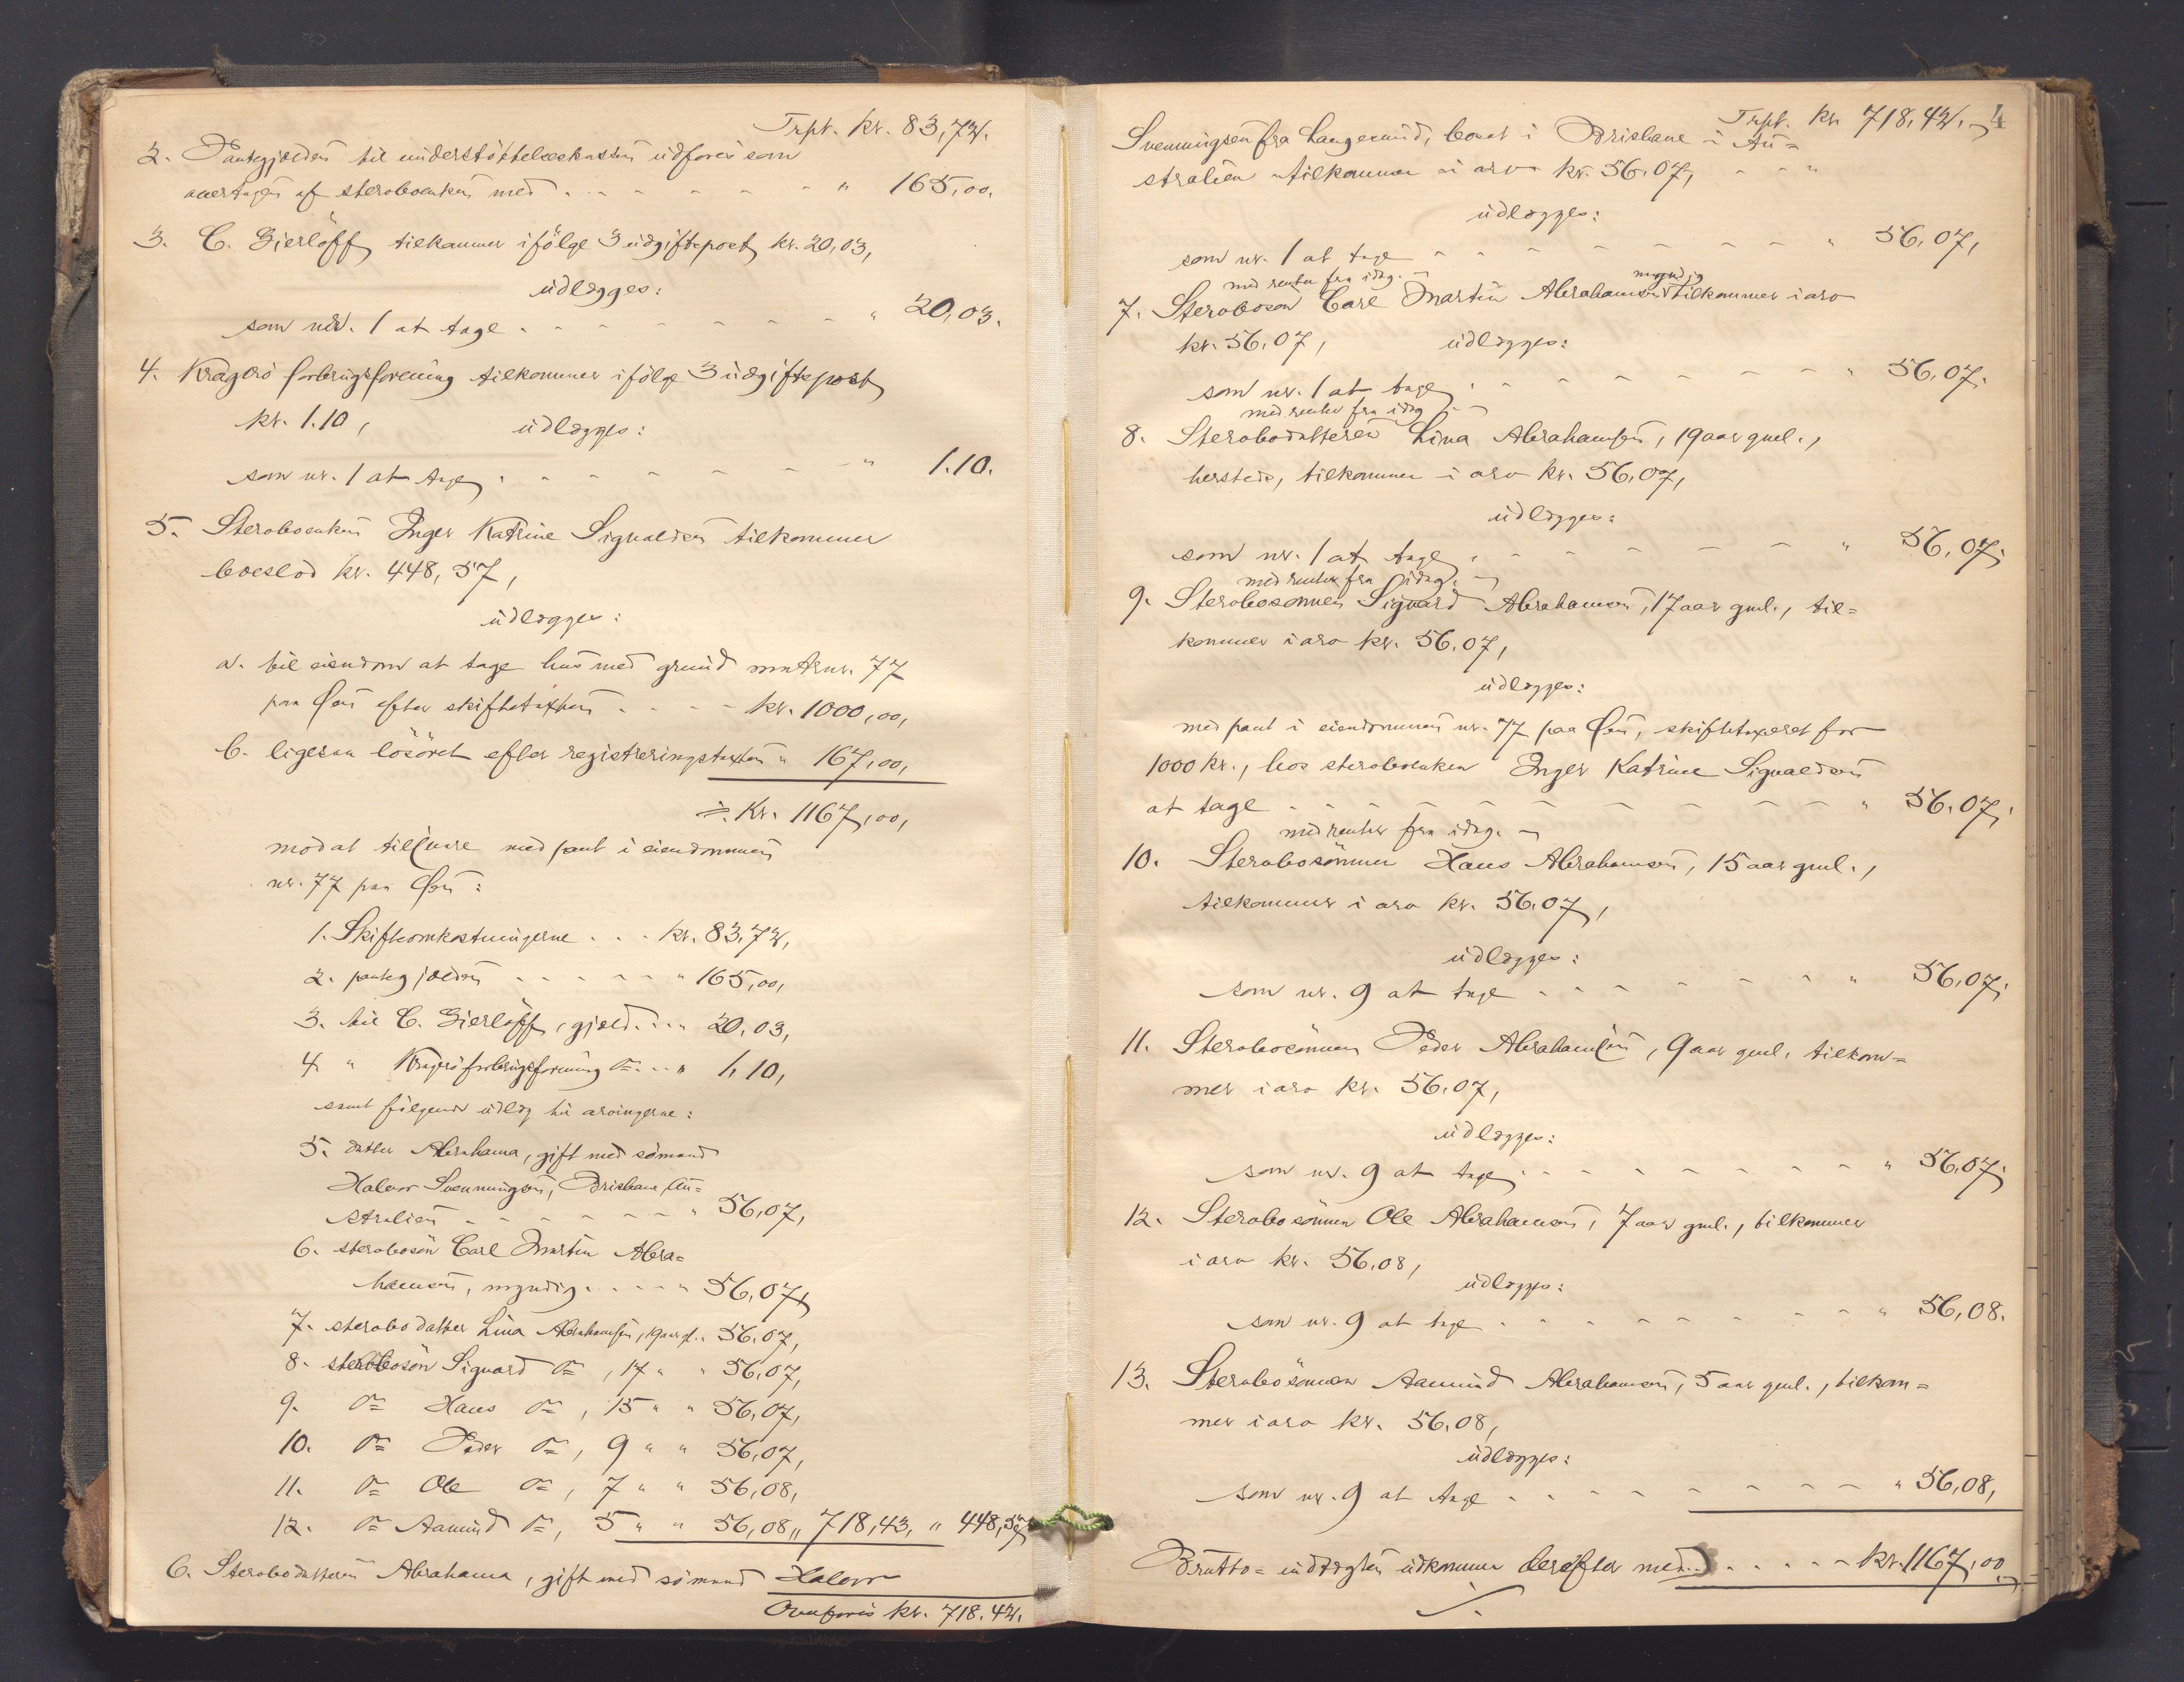 Trpt. kr. 83,72.
2. Pantegjælden til understøttelseskassen udføres som
overtagen af sterboenken med . . . . . " 165,00.
3. C. Gierløff tilkommer ifølge 3 udgiftspost kr. 20,03,
udlægges:
som nr. 1 at tage . . . . . " 20,03.
4. Kragerø forbrugsforening tilkommer ifølge 3 udgiftspost
kr. 1.10, udlægges:
som nr. 1 at tage . . . . . " 1.10.
5. Sterboenken Inger Katrine Sigvaldsen tilkommer
boeslod kr. 448,57,
udlægges:
a. til eiendom at tage hus med grund matrnr. 77
paa Øen efter skiftetaxten . . . . kr. 1000,00,
b. ligesaa løsøret efter registreringstaxten " 167,00,
÷ Kr. 1167,00,
mod at tilsvare med pant i eiendommen
nr. 77 paa Øen:
1. Skifteomkostningerne . . . kr. 83,72,
2. pantegjælden . . . . . " 165,00,
3. til C. Gierløff, gjæld . . . " 20,03,
4 " Kragerø forbrugsforening do . . " 1,10,
samt følgende udlæg til arvingerne:
5. datter Abrahama, gift med sømand
Halvor Svenningsen, Brisbane, Au=
stralien . . . . . " 56,07,
6. sterbosøn Carl Martin Abra=
hamsen, myndig . . . . " 56,07,
7. sterbodatter Lina Abrahamsen, 19 aar gl. " 56,07,
8. sterbosøn Sigvard do, 17 " " 56,07,
9. do Hans do, 15 " " 56,07,
10. do Peder do, 9 " " 56,07,
11. do Ole do, 7 " " 56,08,
12. do Aamund do, 5 " " 56,08 " 718,43, " 448,57
6. Sterbodatteren Abrahama, gift med sømand Halvor
Overføres kr. 718.42.
Trpt. kr. 718,42. 4
Svenningsen fra Langesund, boset i Brisbane i Au=
stralien tilkommer i arv kr. 56,07, . . "
udlægges:
som nr. 1 at tage . . . . . " 56,07,
med renter fra idag.
7. Sterbosøn Carl Martin Abrahamsen myndig tilkommer i arv
kr. 56,07, udlægges:
som nr. 1 at tage . . . . . " 56,07.
med renter fra idag
8. Sterbodatteren Lina Abrahamsen, 19 aar gml.,
hersteds, tilkommer i arv kr. 56,07,
udlægges:
som nr. 1 at tage . . . . . " 56,07,
med renter fra idag.
9. Sterbosønnen Sigvard Abrahamsen, 17 aar gml., til=
kommer i arv kr. 56,07,
udlægges:
med pant i eiendommen nr. 77 paa Øen, skiftetaxeret for
1000 kr., hos sterboenken Inger Katrine Sigvaldsen
at tage . . . . . " 56,07,
med renter fra idag.
10. Sterbosønnen Hans Abrahamsen, 15 aar gml.,
tilkommer i arv kr. 56,07,
udlægges:
som nr. 9 at tage . . . . . " 56,07,
11. Sterbosønnen Peder Abrahamsen, 9 aar gml. tilkom=
mer i arv kr. 56,07,
udlægges:
som nr. 9 at tage . . . . . " 56,07,
12. Sterbosønnen Ole Abrahamsen, 7 aar gml., tilkommer
i arv kr. 56,08,
udlægges:
som nr. 9 at tage . . . . . " 56,08.
13. Sterbosønnen Aamund Abrahamsen, 5 aar gml., tilkom=
mer i arv kr. 56,08,
udlægges:
som nr. 9 at tage . . . . . " 56,08,
Brutto=indtægten udkommer derefter med . . . . kr. 1167,00